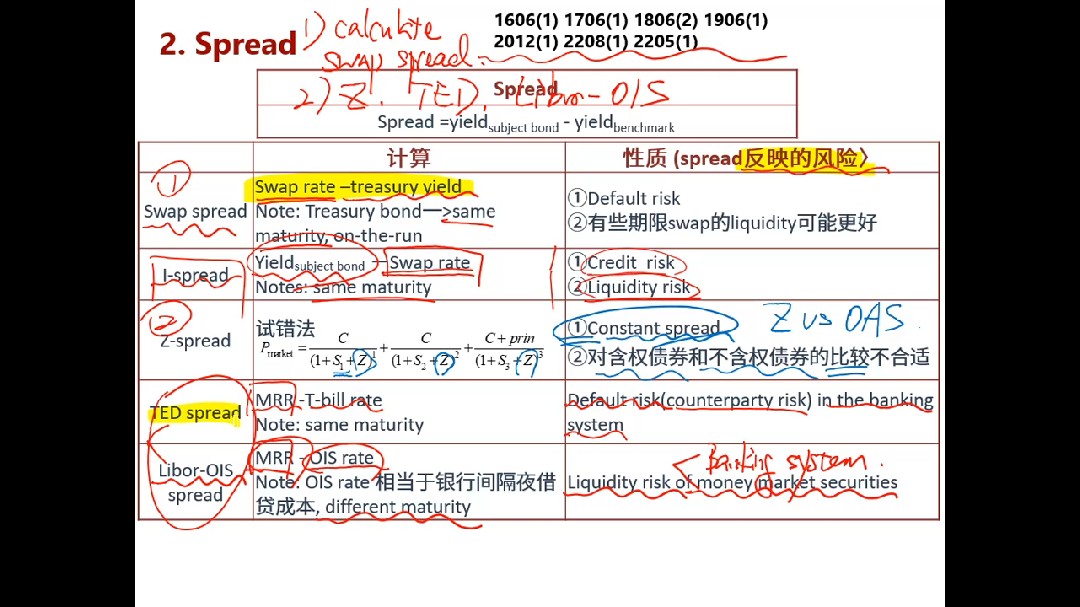 1606(1) 1706(1) 1806(2) 1906(1)
2012(1) 2208(1) 2205(1)
2. Spread
1) calculate
swap spread.
2) Z. TED. Libor-OIS
Spread
Spread =yield subject bond - yield benchmark
计算
性质 (spread反映的风险〉
①
Swap spread
Swap rate –treasury yield
Note: Treasury bond一>same
maturity, on-the-run
①Default risk
②有些期限swap的liquidity可能更好
I-spread
Yield subject bond – Swap rate
Notes: same maturity
①Credit risk
②Liquidity risk
②
Z-spread
试错法
P market = C/(1+S1+Z)^1 + C/(1+S2+Z)^2 + C+prin/(1+S3+Z)^3
①Constant spread
Z vs OAS
②对含权债券和不含权债券的比较不合适
TED spread
MRR -T-bill rate
Note: same maturity
Default risk(counterparty risk) in the banking
system
Libor-OIS
spread
MRR - OIS rate
Note: OIS rate 相当于银行间隔夜借
贷成本, different maturity
Banking system.
Liquidity risk of money market securities